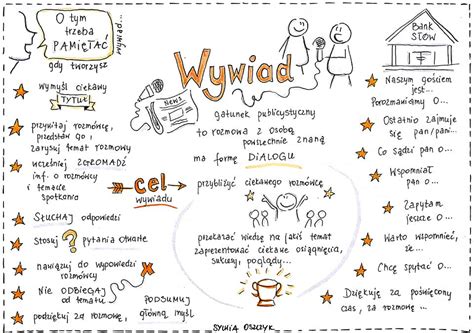 O tym
trzeba
PAMIĘTAĆ
gdy tworzysz
wymyśl ciekawy
TYTUŁ
przywitaj rozmówcę,
przedstaw go,
zarysuj temat rozmowy
wcześniej ZGROMADŹ
inf. o rozmówcy
i temacie
spotkania
SŁUCHAJ odpowiedzi
Stosuj ? pytania otwarte
nawiązuj do wypowiedzi
rozmówcy
NIE ODBIEGAJ
od tematu
podziękuj za rozmowę,
PODSUMUJ
główną myśl
Wywiad
NEWS
gatunek publicystyczny
to rozmowa z osobą
powszechnie znaną
ma formę DIALOGU
cel
wywiadu
przybliżyć ciekawego rozmówcę
przekazać wiedzę na jakiś temat
zaprezentować ciekawe osiągnięcia,
sukcesy, poglądy...
SYLWIA OSZCZYK
BANK
SŁÓW
Naszym gościem
jest...
Porozmawiamy o...
Ostatnio zajmuje
się pan/pani...
Co sądzi pan o...
Wspomniał
pan o...
Zapytam
jeszcze o...
Warto wspomnieć,
że...
Chcę spytać o...
Dziękuję za poświęcony
czas, za rozmowę...